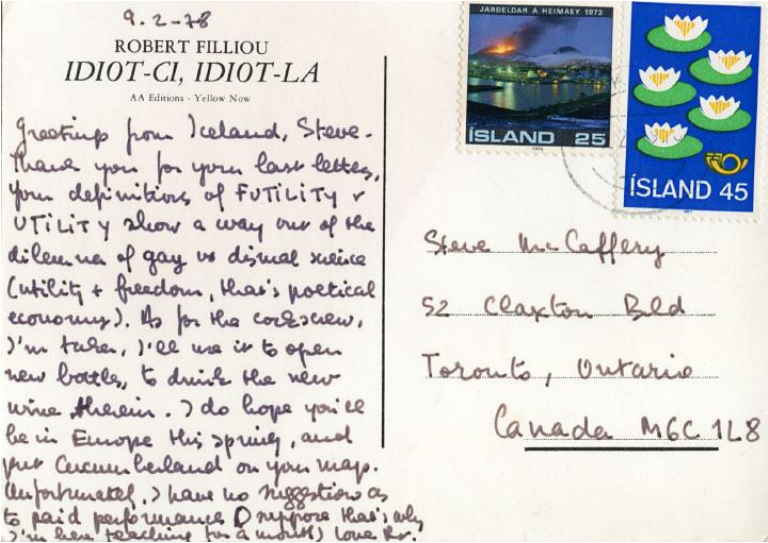 9.2-78
ROBERT FILLIOU
IDIOT-CI, IDIOT-LA
AA Editions - Yellow Now
Greetings from Iceland, Steve-
Thank you for your last letter,
your definitions of FUTILITY &
UTILITY show a way out of the
dilemma of gay vs dismal science
(utility + freedom, that's poetical
economy). As for the corkscrew,
I'm taker, I'll use it to open
new bottles, to drink the new
wine therein. I do hope you'll
be in Europe this spring, and
put Cucumberland on your map.
Unfortunatel, I have no suggestion as
to paid performance (I suppose that's why
I'm here teaching for a month) Love
JARÐELDAR Á HEIMAEY 1973
ÍSLAND 25
ÍSLAND 45
Steve McCaffery
52 Claxton Bld
Toronto, Ontario
Canada M6C 1L8